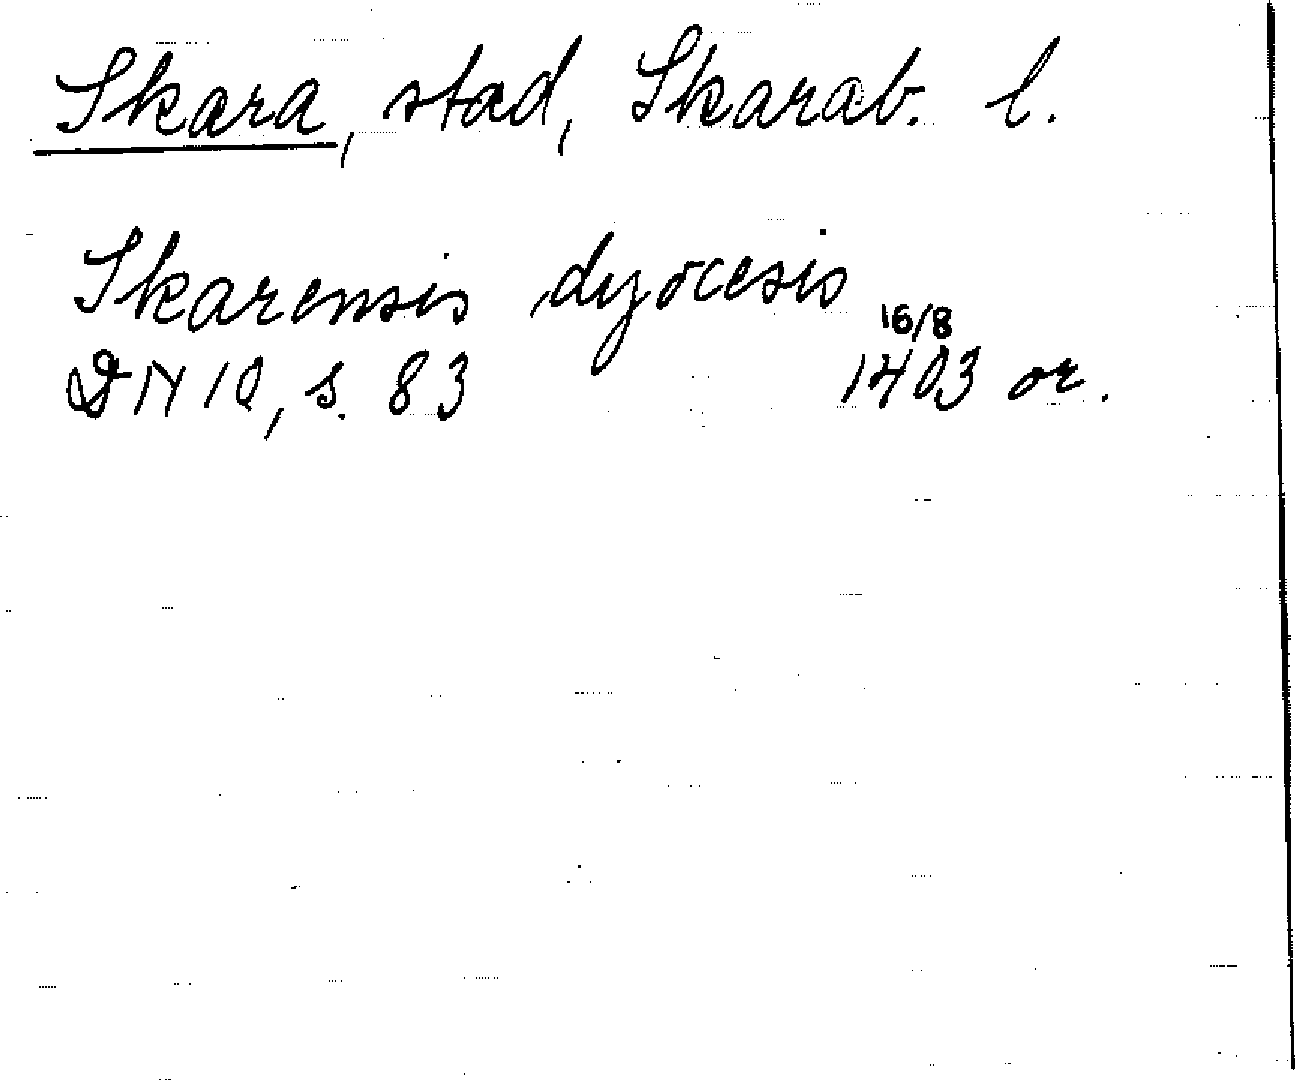 Skara, stad, Skarab. l.
Skarensis dyocesis
16/8
DN 10, s. 83 1403 or.